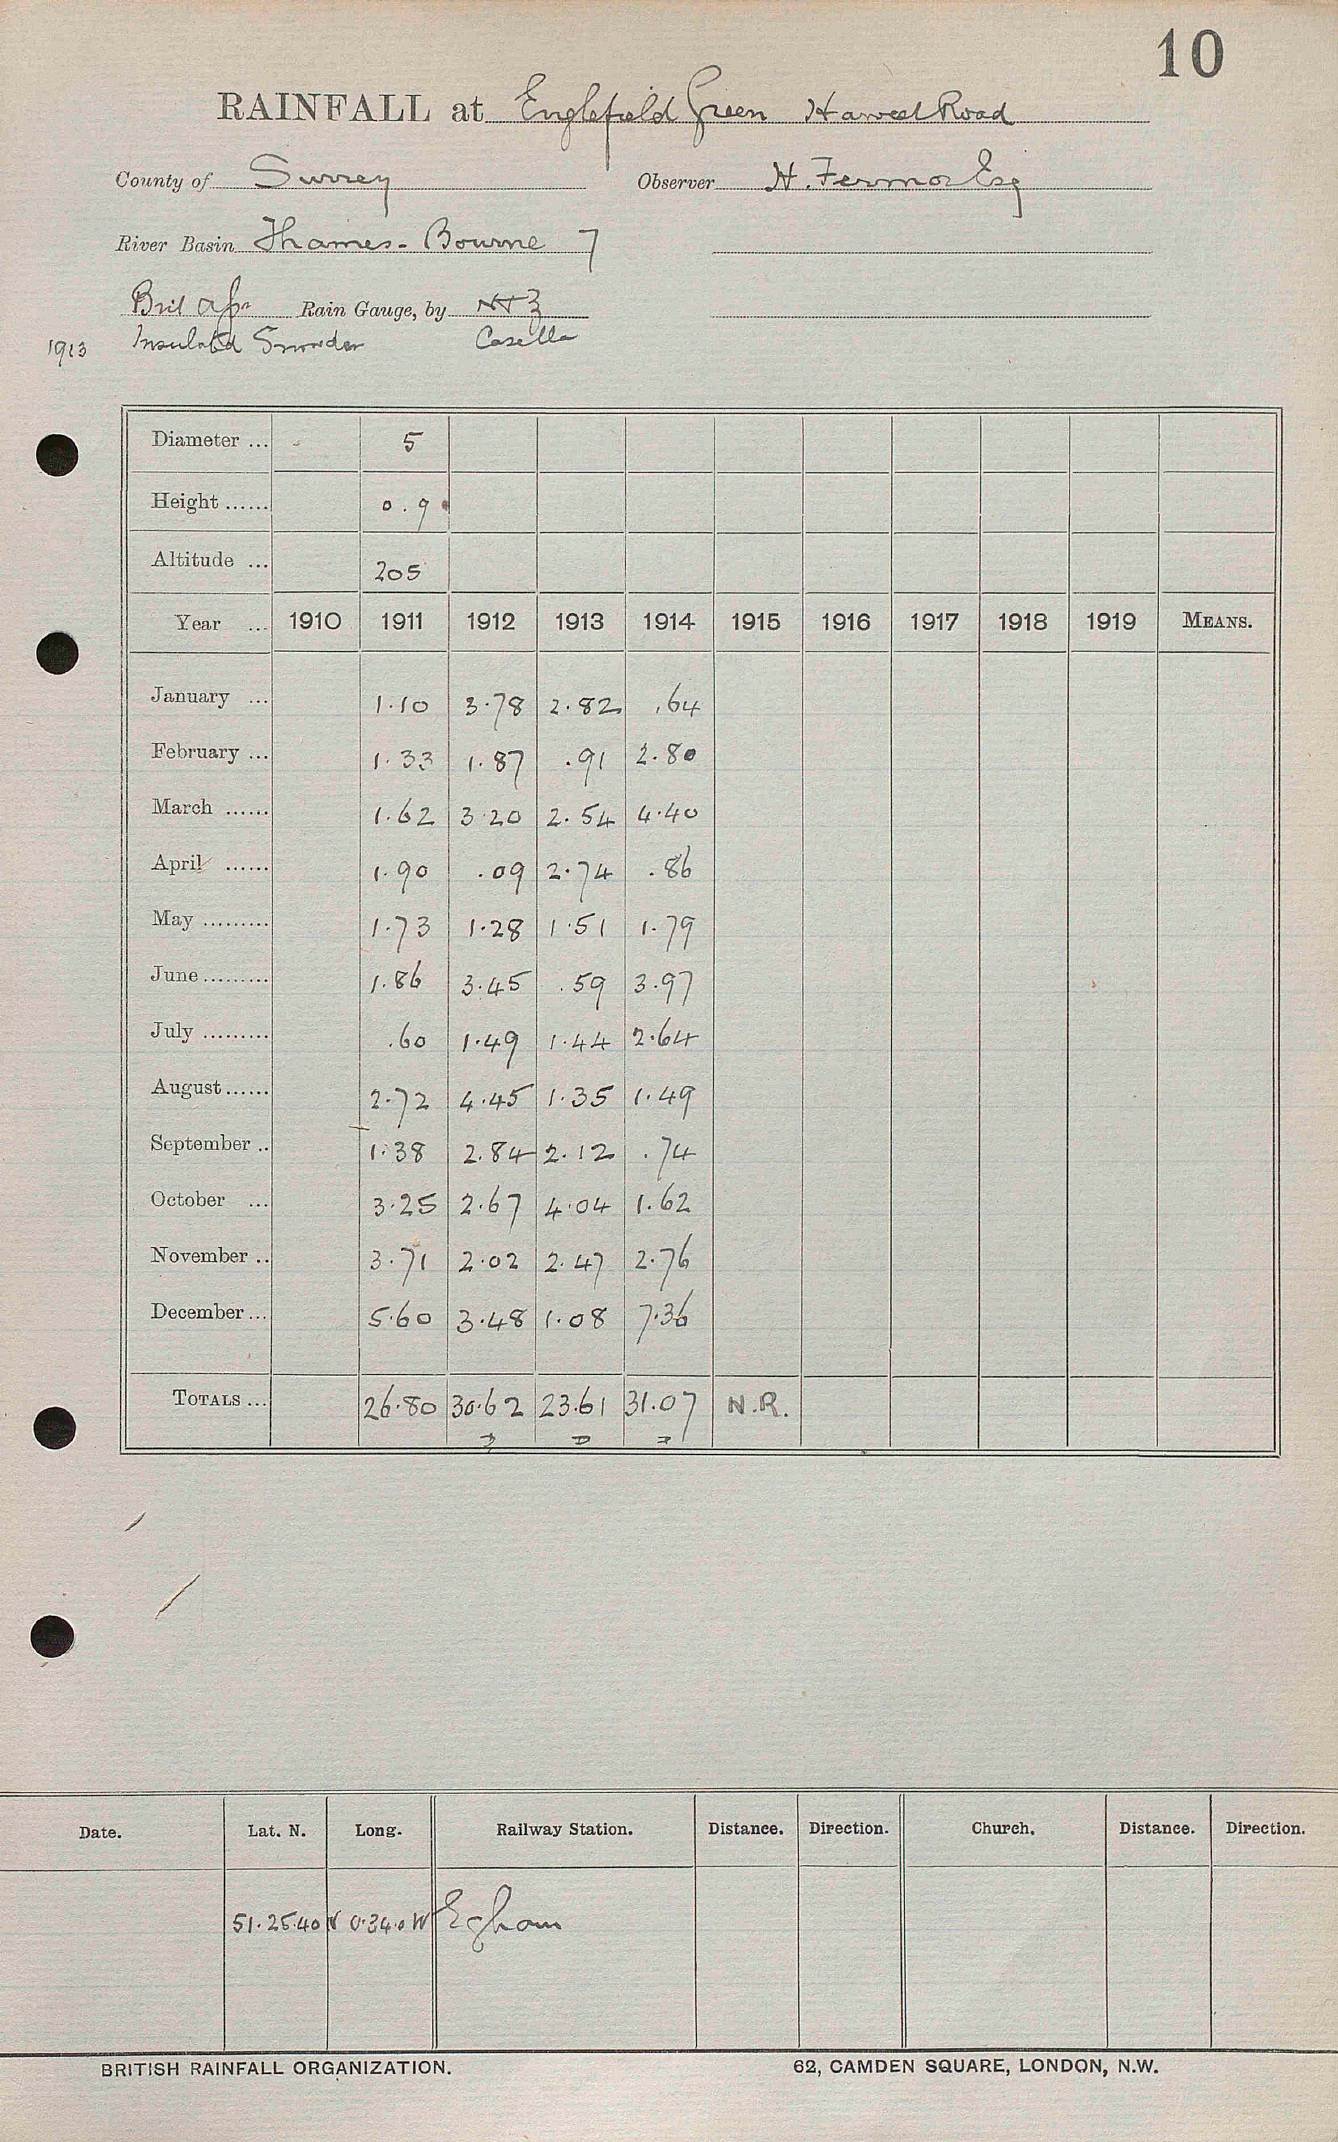 10
RAINFALL at Englefield Green Harvest Road
County of Surrey Observer H. Fermor Esq
River Basin Thames - Bourne 7
Rain Gauge, by
1913 Insulated Snowdon Casella
Diameter ... 5
Height ...... 0.9
Altitude ... 205
Year ... 1910 1911 1912 1913 1914 1915 1916 1917 1918 1919 MEANS.
January ... 1.10 3.78 2.82 .64
February ... 1.33 1.87 .91 2.80
March ...... 1.62 3.20 2.54 4.40
April ...... 1.90 .09 2.74 .86
May ......... 1.73 1.28 1.51 1.79
June ......... 1.86 3.45 .59 3.97
July ......... .60 1.49 1.44 2.64
August ...... 2.72 4.45 1.35 1.49
September .. 1.38 2.84 2.12 .74
October ... 3.25 2.67 4.04 1.62
November .. 3.71 2.02 2.47 2.76
December ... 5.60 3.48 1.08 7.36
TOTALS ... 26.80 30.62 23.61 31.07 N.R.
Date. Lat. N. Long. Railway Station. Distance. Direction. Church. Distance. Direction.
51.25.40 N 0.34.0 W Egham
BRITISH RAINFALL ORGANIZATION. 62, CAMDEN SQUARE, LONDON, N.W.